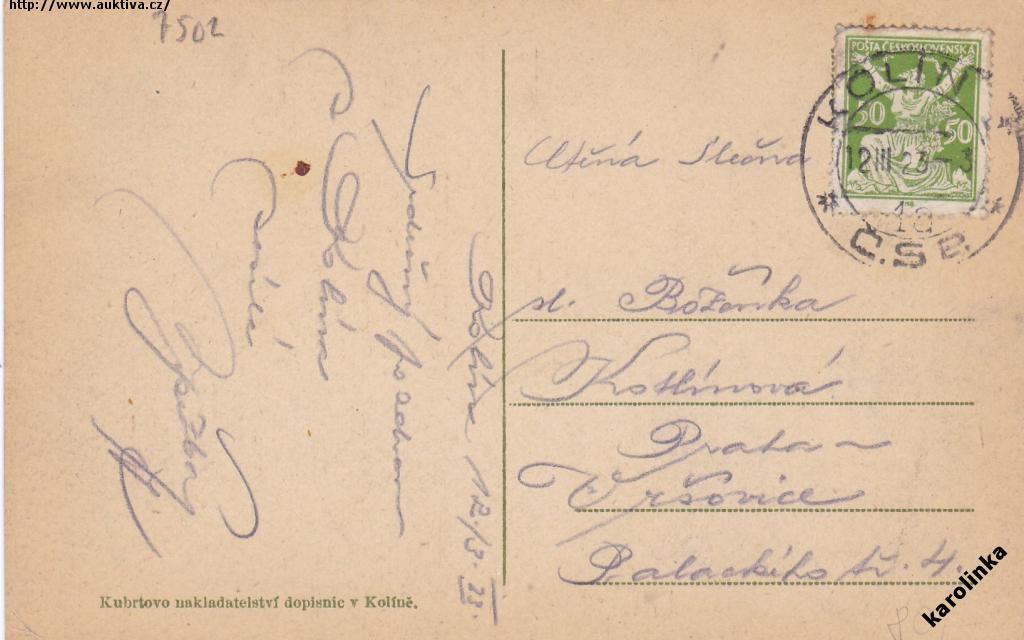 http://www.auktiva.cz/
7502
POŠTA ČESKOSLOVENSKA
50 50
KOLÍN
12 III 23-3
1a
Č.S.P.
Ctěná Slečna
sl. Boženka
Kotlínová
Praha -
Vršovice
Palackého tř. 4.
Kolín 12/3. 23
Srdečný pozdrav
z Kolína
Kubrtovo nakladatelství dopisnic v Kolíně.
karolinka